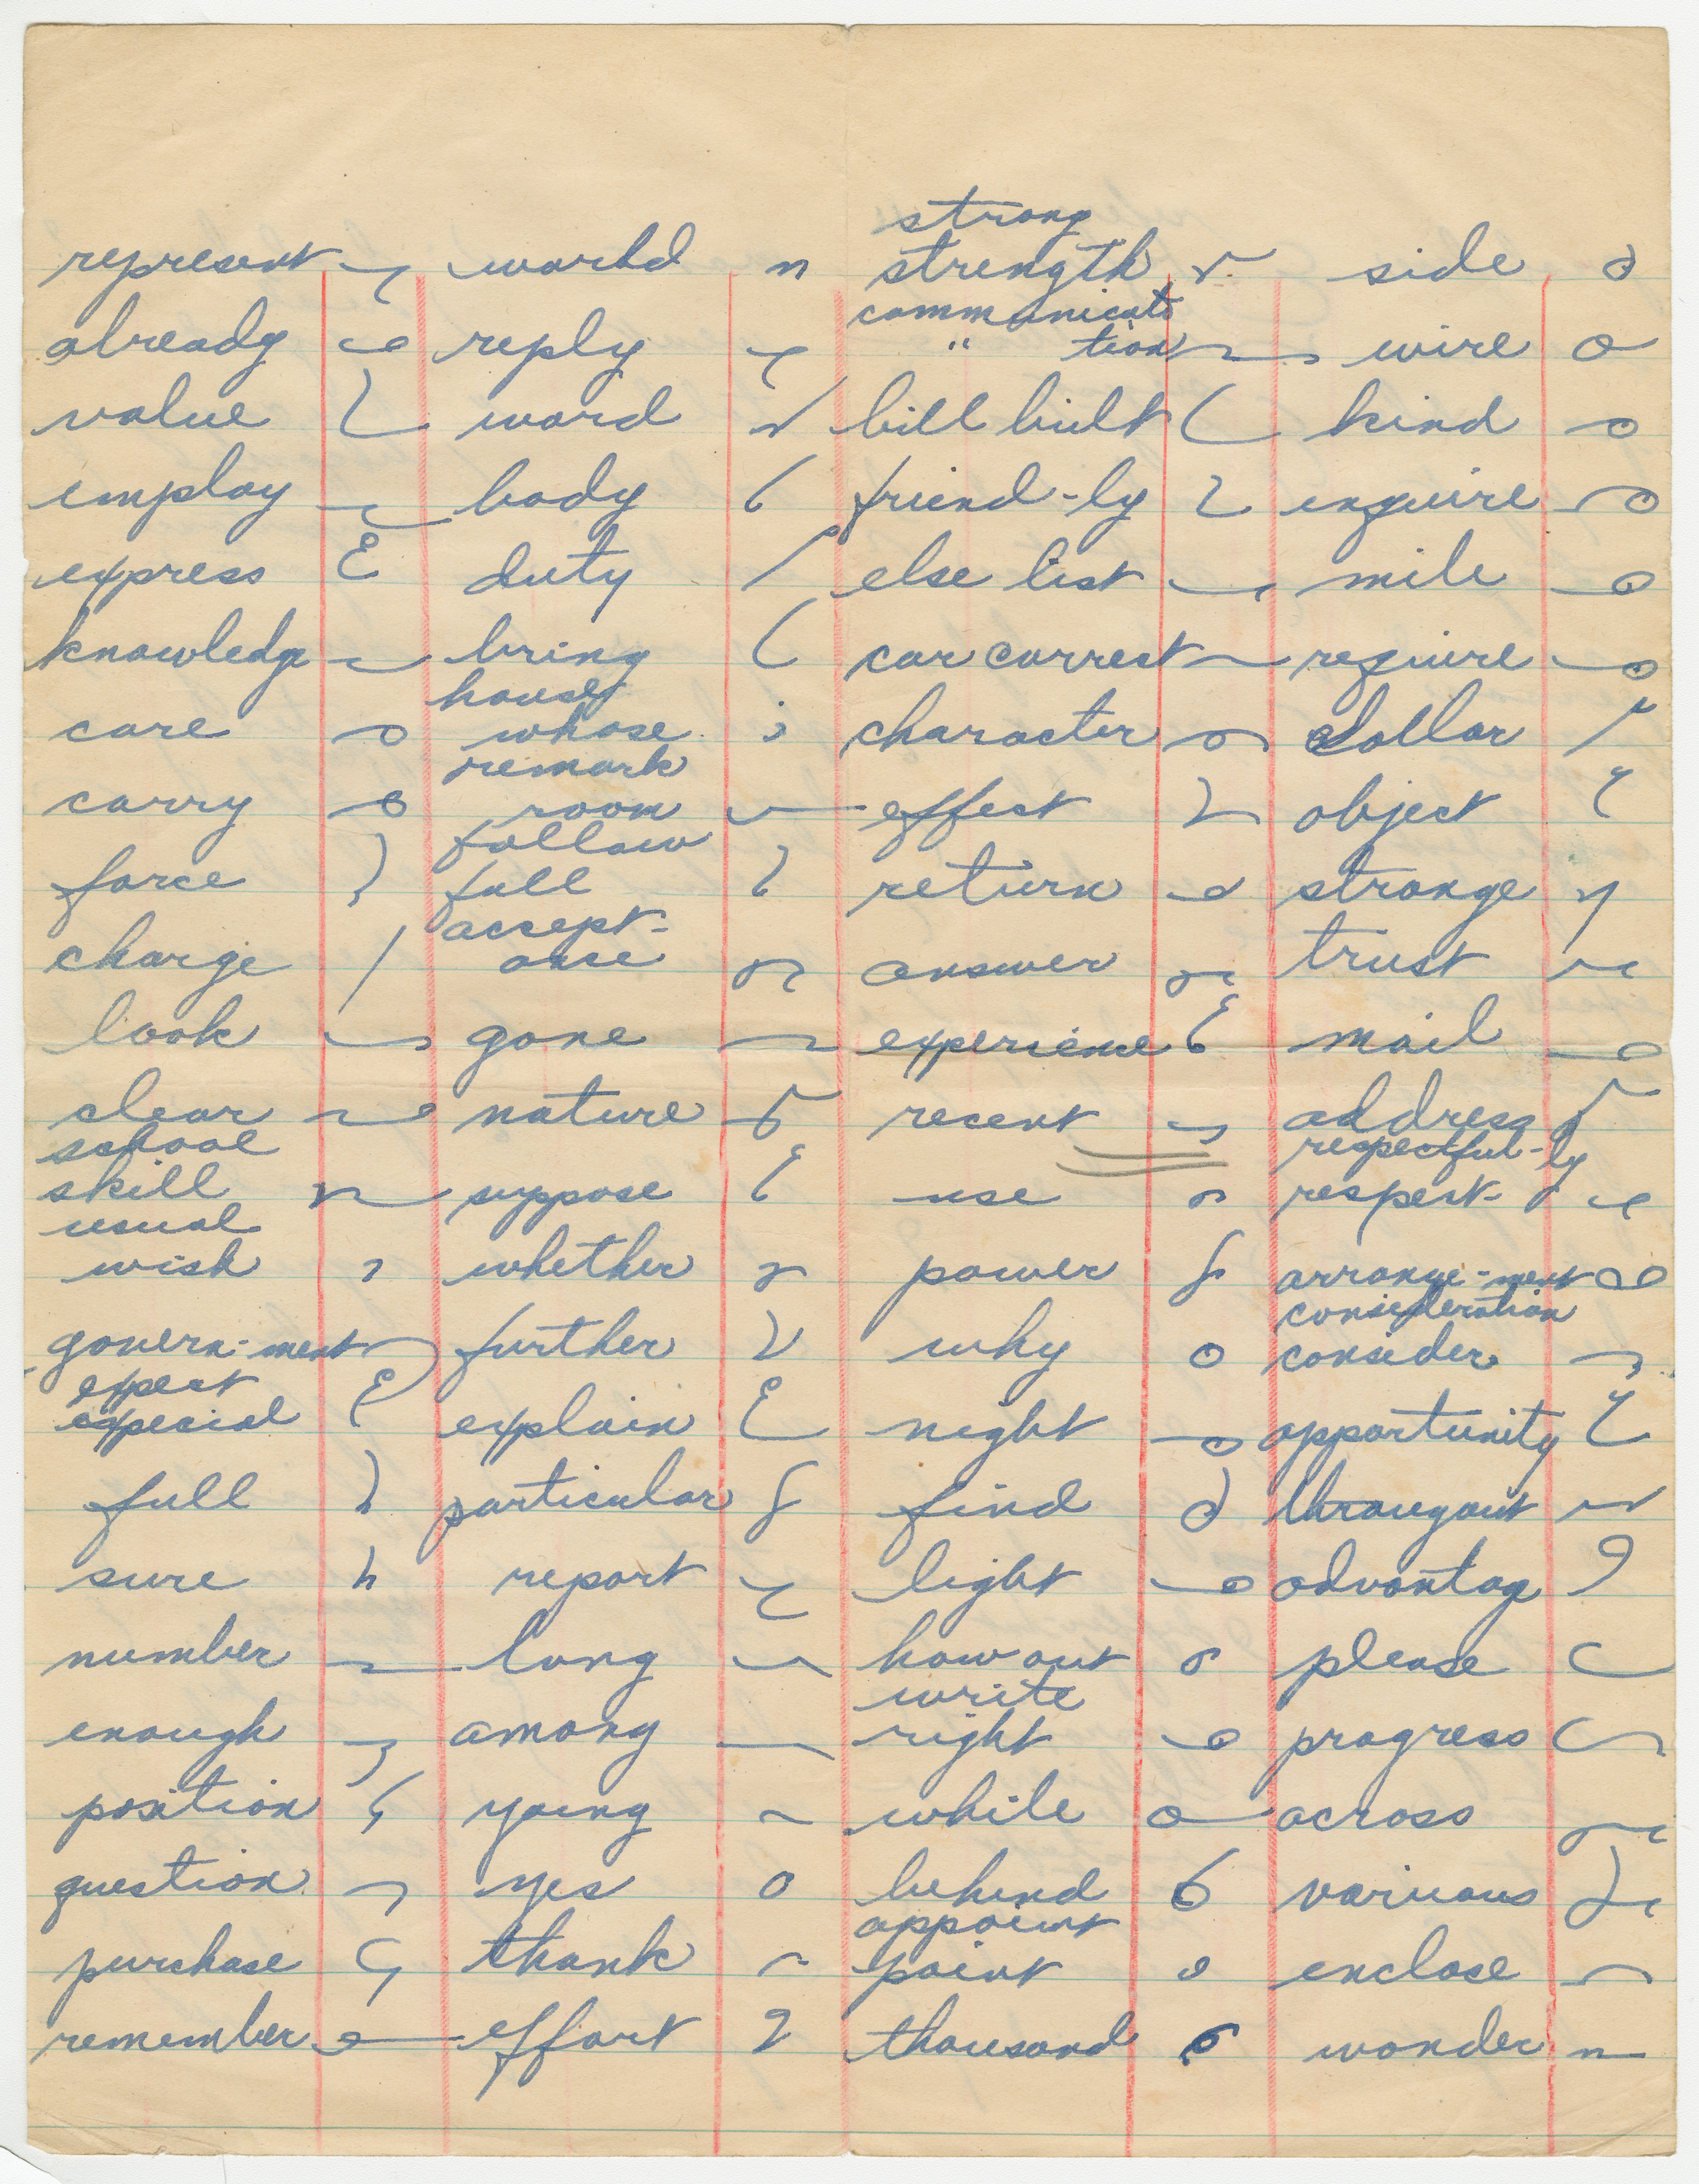 represent world strong strength side
already reply communicate " tion wire
value word bill built kind
employ body friend-ly enquire
express duty else list mile
knowledge bring car correct require
care house whose character dollar
carry remark room effect object
force follow fall return strange
charge accept-ance answer trust
look gone experience mail
clear nature recent address
school skill suppose use respectful-ly respect-
usual wish whether power arrange-ment
govern-ment further why consideration consider
expect especial explain night opportunity
full particular find througout
sure report light advantage
number long how out please
enough among write right progress
position young while across
question yes behind various
purchase thank appoint point enclose
remember effort thousand wonder